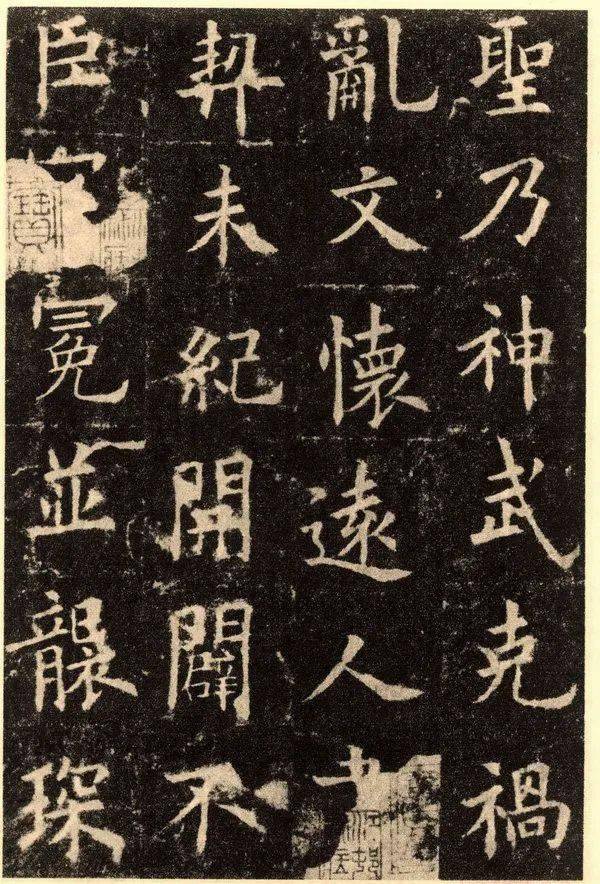 聖乃神武克禍
亂文懷遠人
契未紀開闢不
臣冕並襲琛